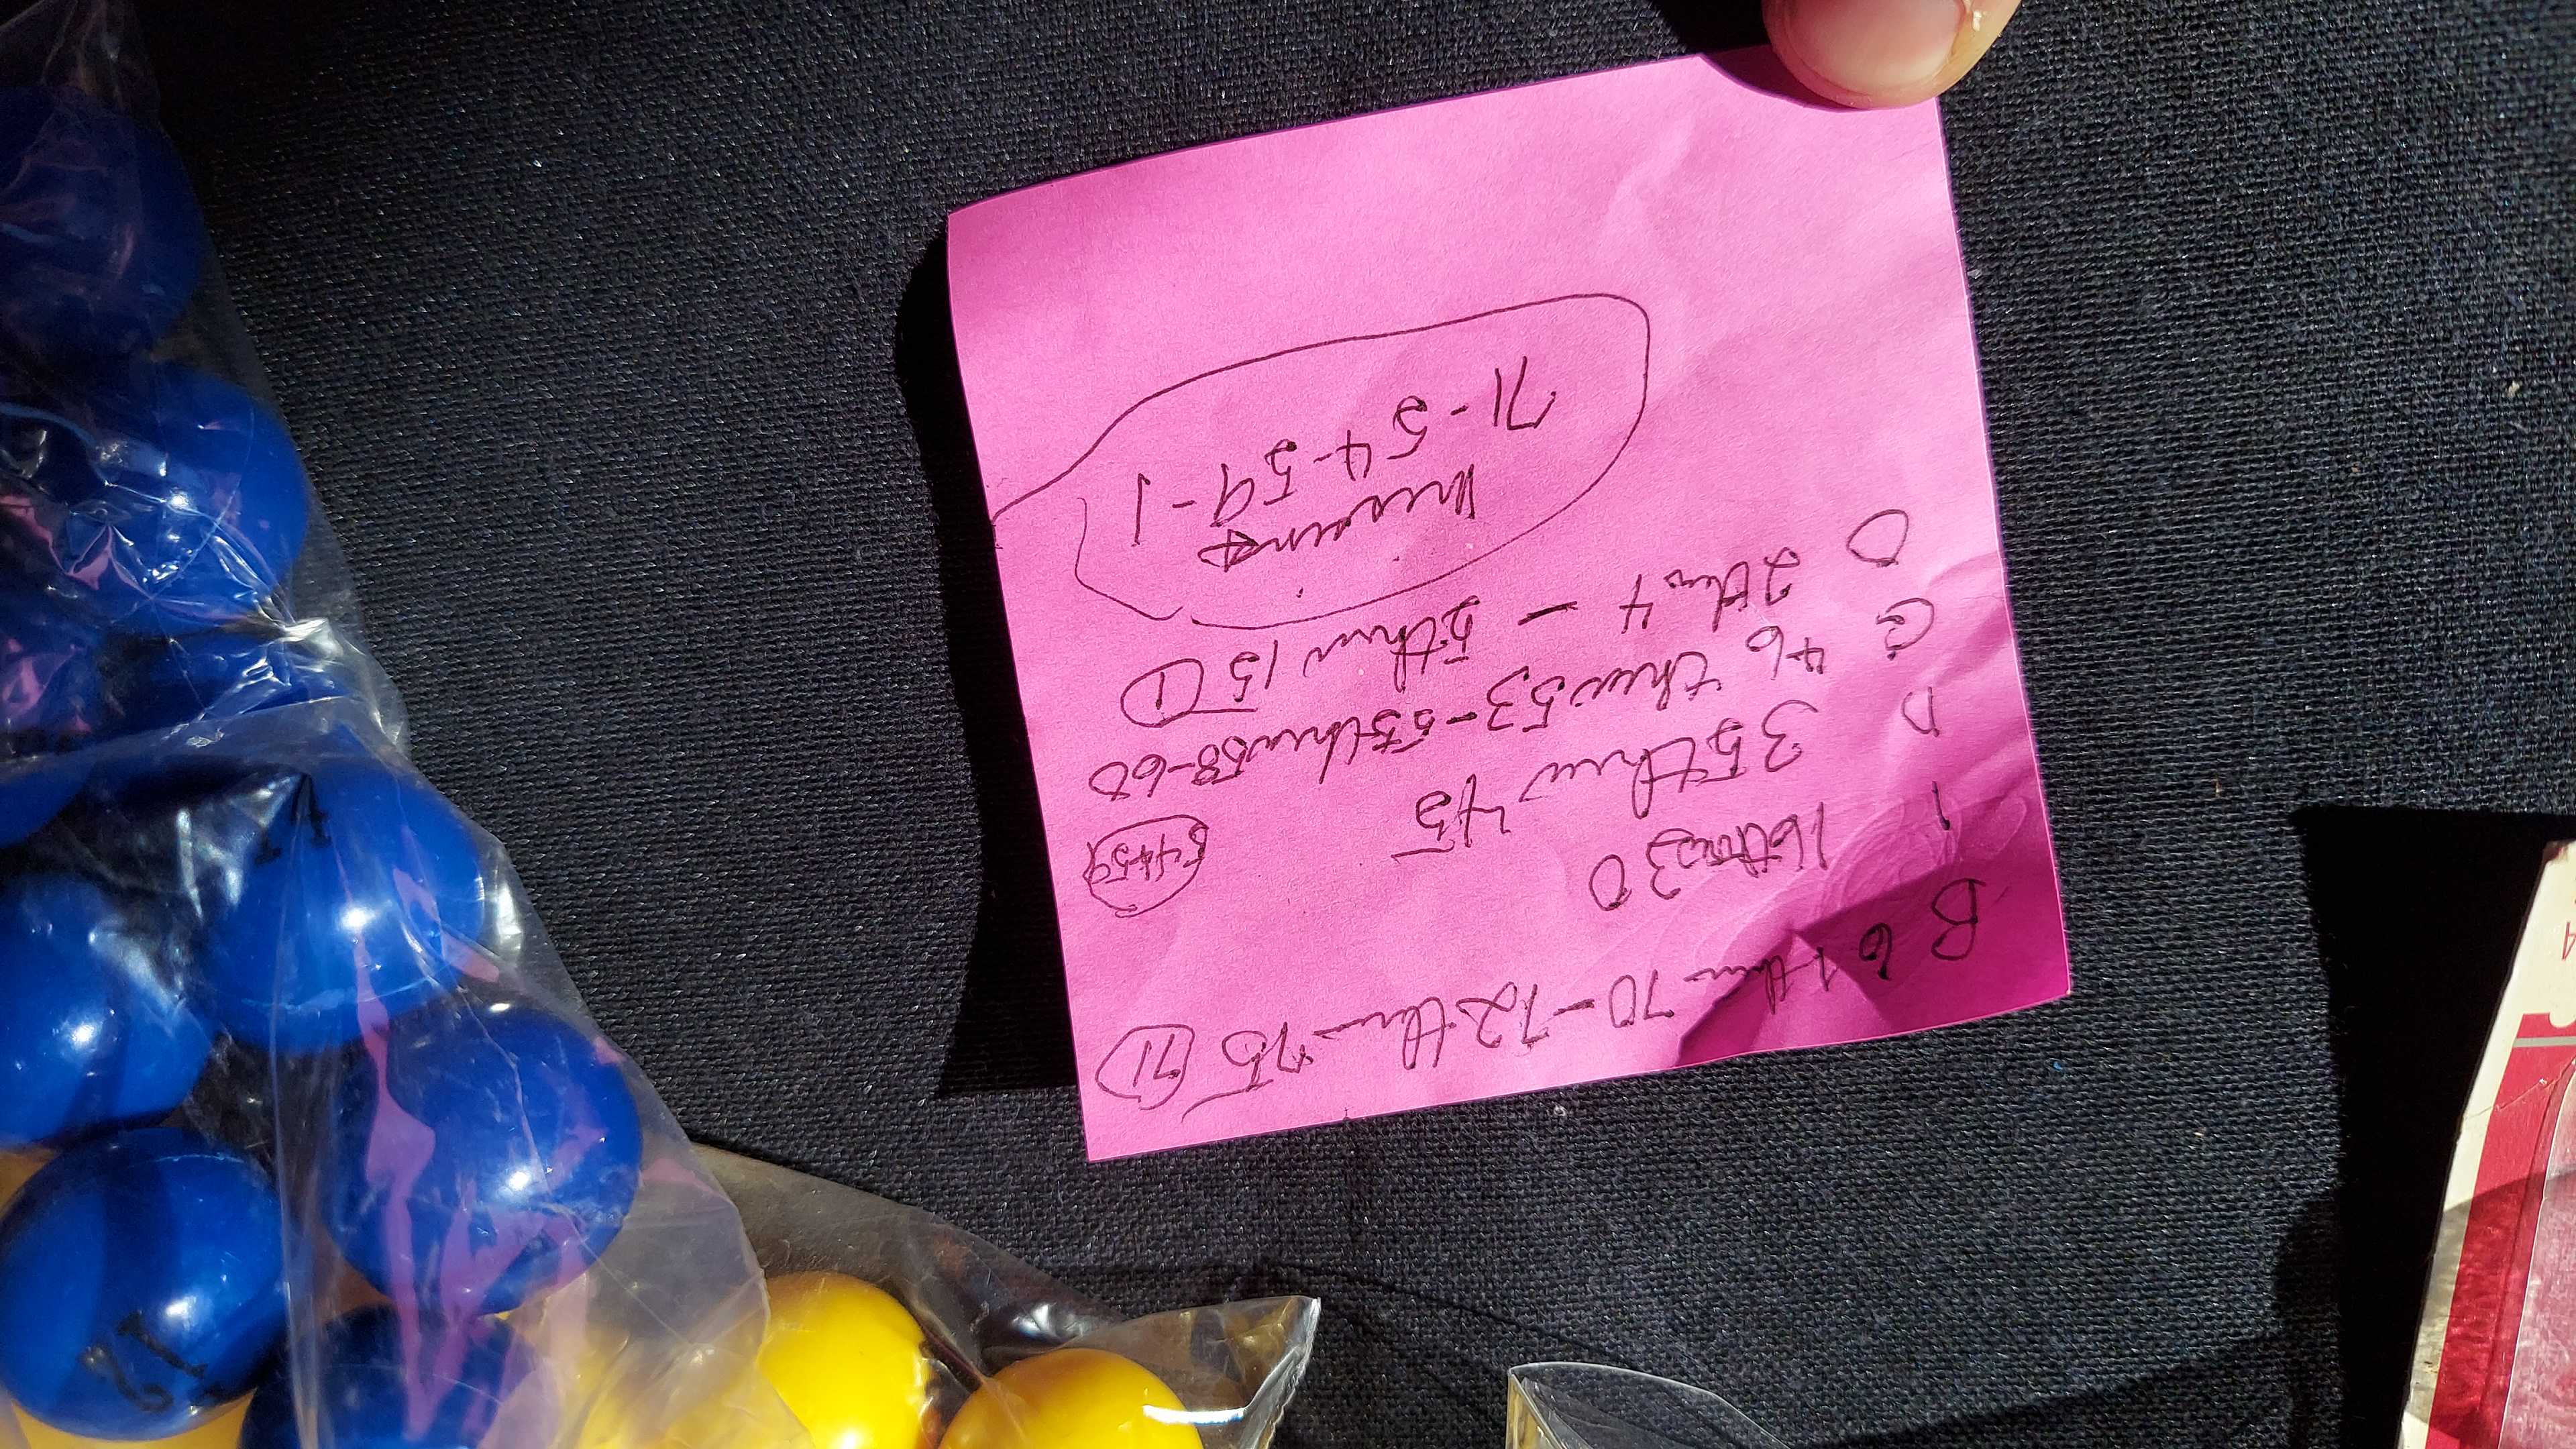 B 61 thru 70 - 72 thru 75 (71)
I
16 thru 30
N
35 thru 45
54+59
G
46 thru 53 - 55 thru 58-60
O
2 thru 4 - 5 thru 15 (1)
71-5 4-59-1
14
12
4